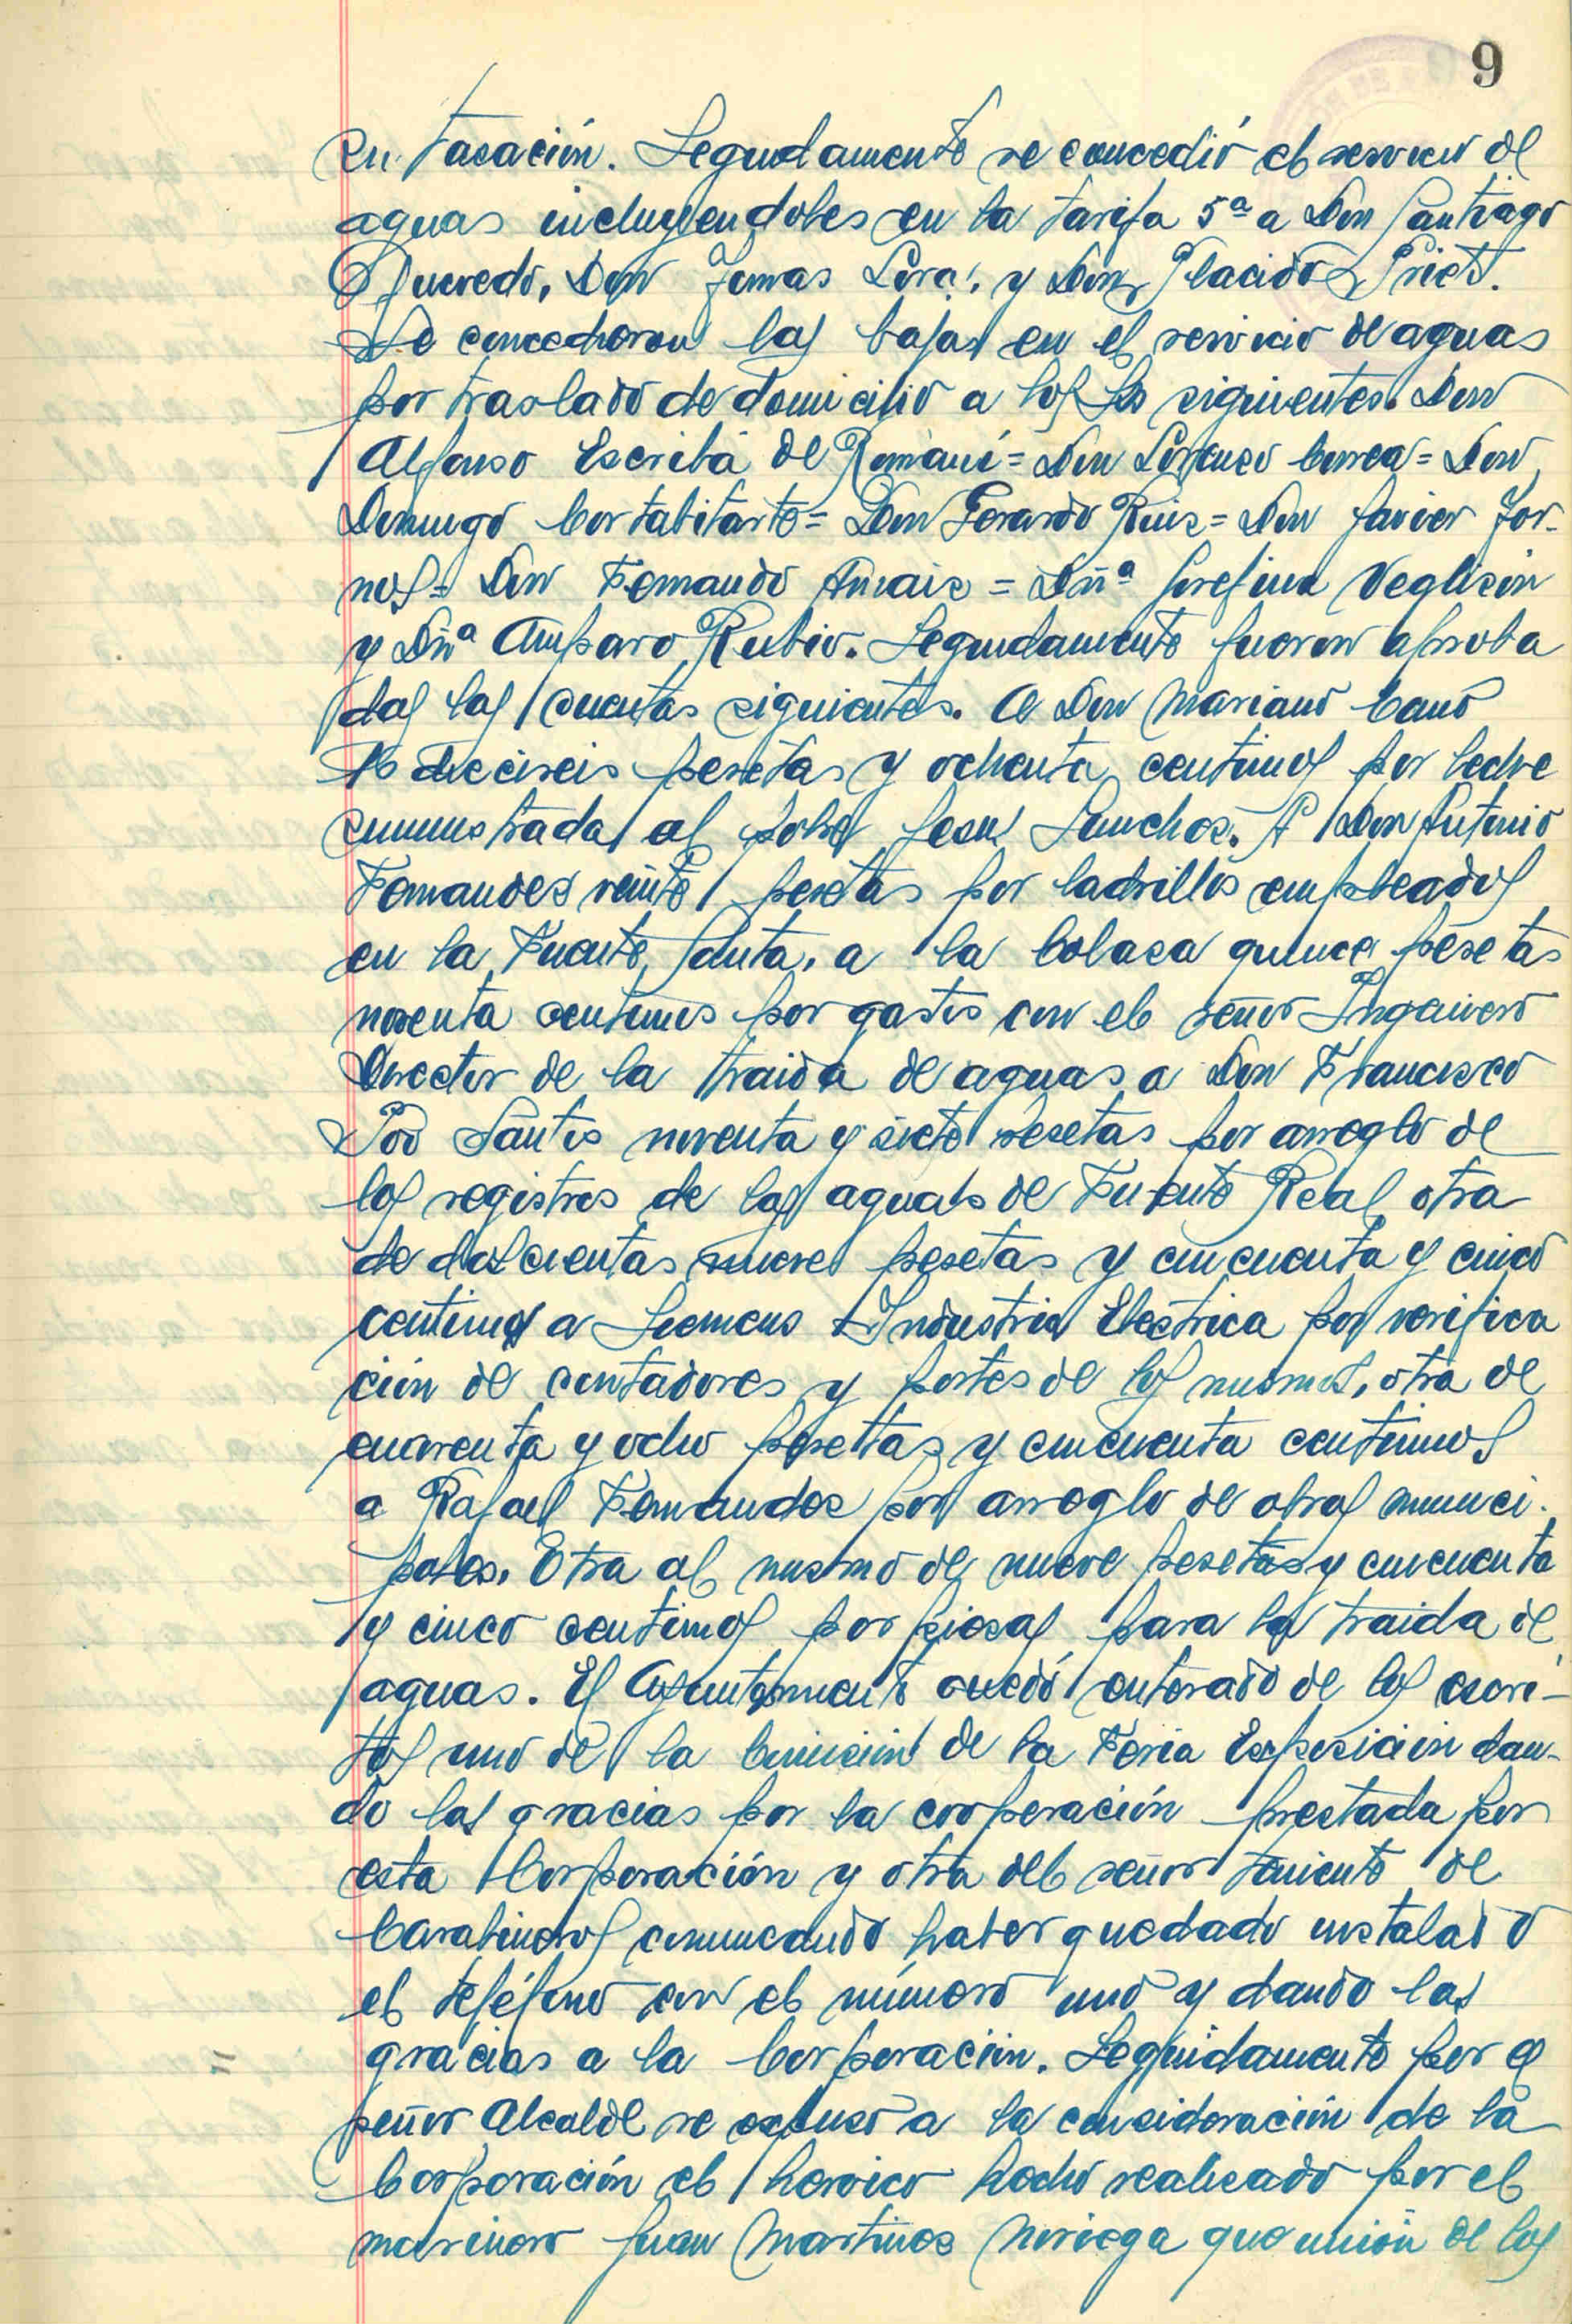 9
en tasación. Seguidamente se concedió el servicio de
aguas incluyendoles en la tarifa 5ª a Don Santiago
Quevedo, Don Tomas Lora, y Don Placido Prieto.
Se concedieron las bajas en el servicio de aguas
por traslado de domicilio a los Srs siguientes. Don
Alfonso Escribá de Romaní = Don Lorenzo Correa = Don
Domingo Cortabitarte = Don Gerardo Ruiz = Don Javier For-
nos = Don Fernando Arnaiz = Dñª Josefina Veglison
y Dñª Amparo Rubio. Seguidamente fueron aproba
das las cuentas siguientes. A Don Mariano Cano
dieciseis pesetas y ochenta centimos por leche
suministrada al pobre Jesus Sanchez. A Don Antonio
Fernandez veinte pesetas por ladrillos empleados
en la Fuente Santa, a la Colasa quince pesetas
noventa centimos por gastos con el señor Ingeniero
Director de la traida de aguas a Don Francisco
Poo Santos noventa y siete pesetas por arreglo de
los registros de las aguas de Fuente Real otra
de doscientas nueve pesetas y cincuenta y cinco
centimos a Siemens Industria Electrica por verifica
ción de contadores y portes de los mismos, otra de
cuarenta y ocho pesetas y cincuenta centimos
a Rafael Fernandez por arreglo de obras munici.
pales. Otra al mismo de nueve pesetas y cincuenta
y cinco centimos por piezas para la traida de
aguas. El Ayuntamiento quedó enterado de los escri-
tos uno de la Comisión de la Feria Exposicion dan-
do las gracias por la cooperación prestada por
esta Corporación y otra del señor teniente de
Carabineros comunicando haber quedado instalado
el teléfono con el número uno y dando las
gracias a la Corporación. Seguidamente por el
señor Alcalde se expuso a la consideración de la
Corporación el heroico hecho realizado por el
marinero Juan Martinez Noriega que unión de los